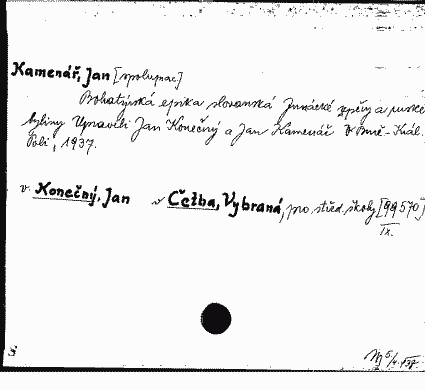 Kamenář, Jan [spoluprac]
Bohatýrská epika slovanská Junácké zpěvy a ruské
byliny Upravili Jan Konečný a Jan Kamenář V Brně-Král.
Poli, 1937.
v. Konečný, Jan v Četba, Vybraná, pro střed. školy [99570]
IX.